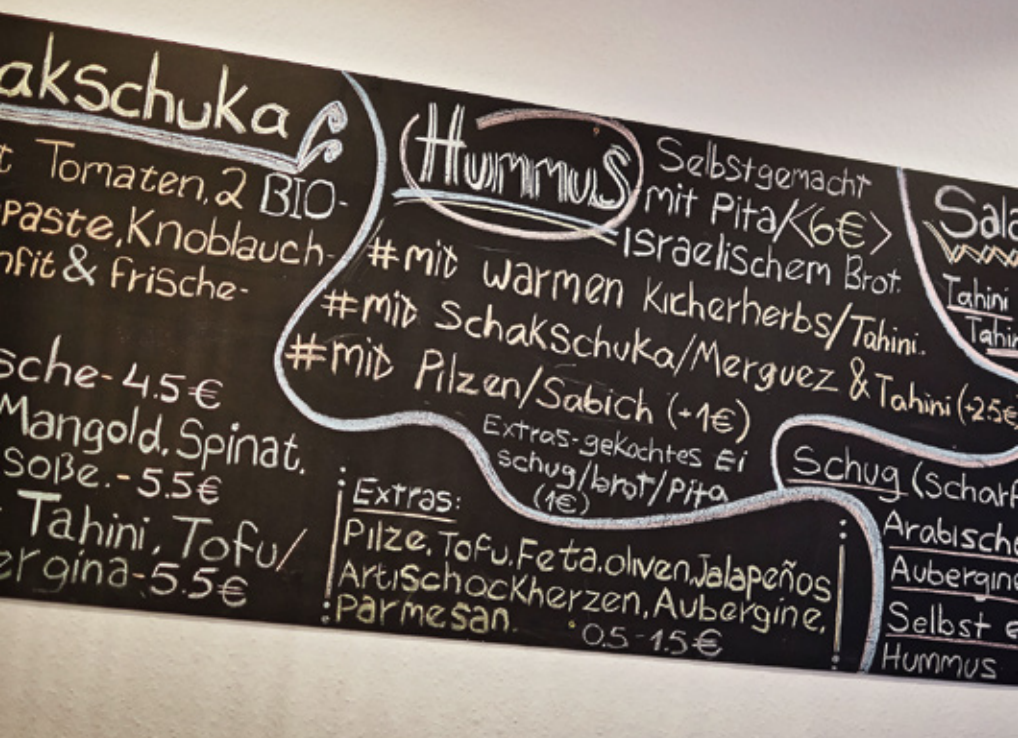 akschuka
t Tomaten, 2 BIO-
paste, Knoblauch-
nfit & frische-
sche - 4.5€
Mangold, Spinat,
soße. - 5.5€
Tahini, Tofu/
ergina - 5.5€
Hummus
Selbstgemacht
mit Pita/<6€>
Israelischem Brot.
#mit warmen Kicherherbs/Tahini.
#mit Schakschuka/Merguez & Tahini (+2.5€)
#mit Pilzen/Sabich (+1€)
Extras-gekochtes Ei
schug/brot/Pita
(1€)
Extras:
Pilze, Tofu, Feta, oliven, Jalapeños
Artischockherzen, Aubergine,
parmesan.
0.5-1.5€
Sala
Tahini
Tahin
Schug (scharf
Arabische
Aubergine
Selbst e
Hummus